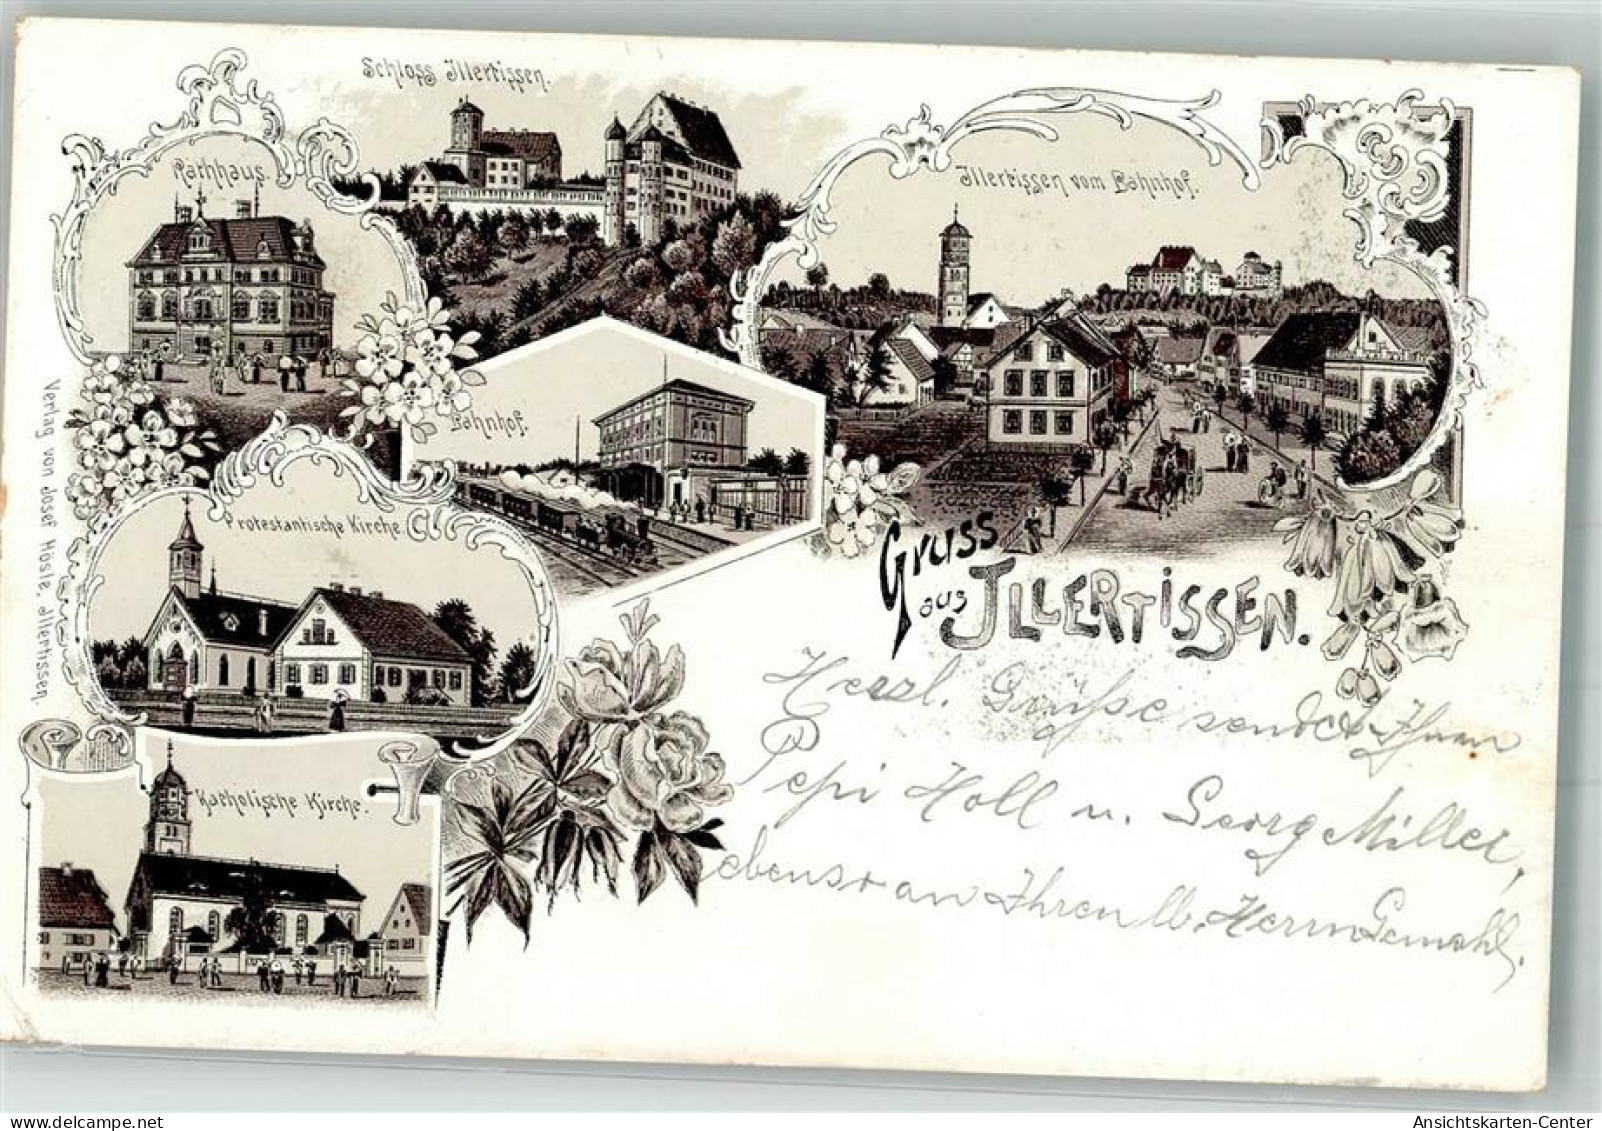 Schloss Illertissen.
Rathhaus.
Illertissen vom Bahnhof.
Bahnhof.
Protestantische Kirche
Katholische Kirche.
Verlag von Josef Hosle, Illertissen.
Gruss
aus ILLERTISSEN.
Herzl. Grüße sendet Ihnen
Pepi Holl u. Georg Miller,
ebenso an Ihren lb. Herrn Gemahl.
Ansichtskarten-Center